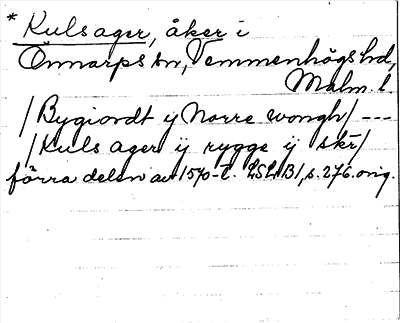 * Kulsager, åker i
Önnarps sn, Vemmenhögs hd,
Malm. l.
/Bygiordt y Norre wongh/ ---
/Kuls ager ÿ rygge ÿ skr/
förra delen av 1570-t. LSLB1, s. 276. orig.